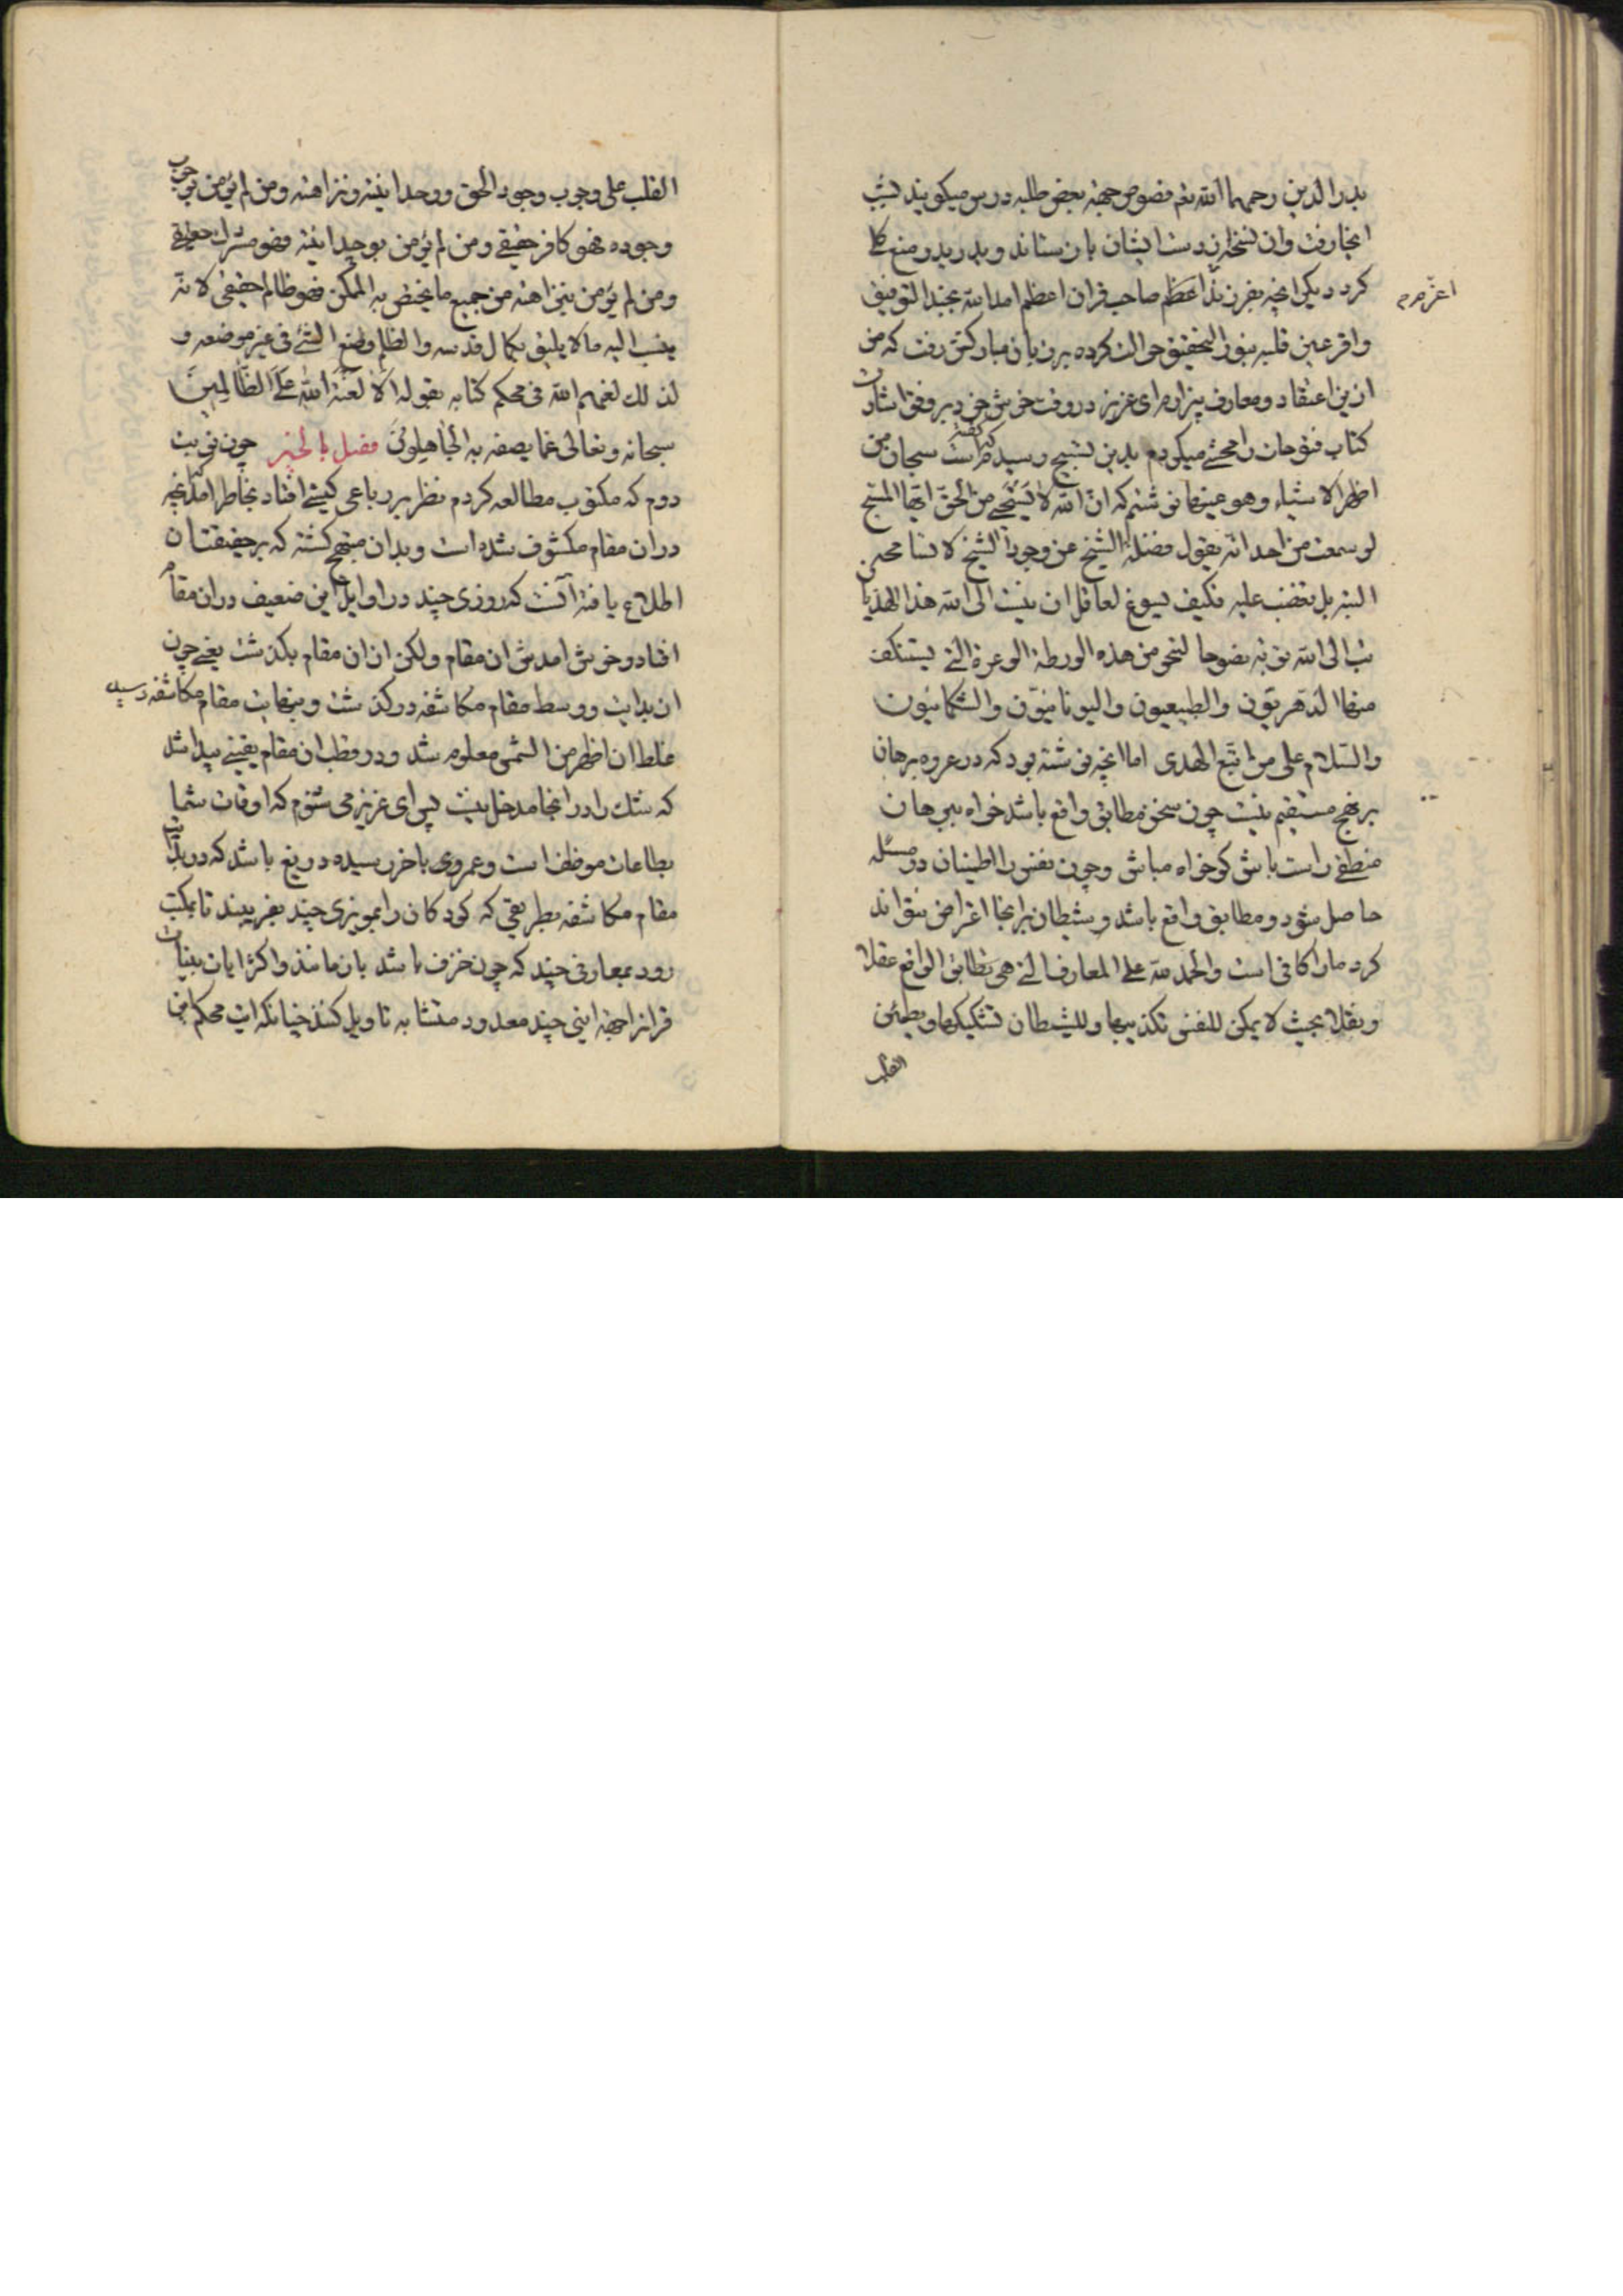 بدر الدین رحمهما الله نیم فصوص جهة بعض طلبه درس میکویند لشب
انجا رفت وان نسخه از دست ایشان باز ستاند و بدرید و منع کلی
کرد دیکر انچه بفرزند اعظم صاحب قران اعظم امد الله بجند التوفیق
اعزهم
واقر عین قلبه بنور التحقیق حوالت کرده بر زبان مبارکش رفت که من
ازین اعتقاد و معارف بیزارم ای عزیز در وقت خوش خود بر وفق اشارت
کتاب فتوحات را محشی میکردم بدین تسبیح رسیدم که گفته است سبحان من
اظهر الاشیاء وهو عینها نوشتم که ان الله لا یستحیی من الحق ایها الشیخ
لو سمعت من احد انه یقول فضلة الشیخ عین وجود الشیخ لا تسامحه
البتة بل تغضب علیه فکیف یسوغ لعاقل ان ینسب الی الله هذا الهذیان
تب الی الله توبة نصوحا لتنجو من هذه الورطة الوعرة التی یستنکف
منها الدهریون والطبیعیون والیونانیون والشکمانیون
والسلام علی من اتبع الهدی اما انچه نوشته بود که در عروه برهان
بر نهج مستقیم نیست چون سخن مطابق واقع باشد خواه ببرهان
منطقی راست باش کو خواه مباش وچون نفس را اطمینان در مسئله
حاصل شود و مطابق واقع باشد و شیطان بر انجا اعتراض نتواند
کرد ما را کافی است والحمد لله علی المعارف التی هی تطابق الواقع عقلا
ونقلا بحیث لا یمکن للنفس تکذیبها وللشیطان تشکیکها ویطمئن
القلب
القلب علی وجوب وجود الحق ووحدانیته ونزاهته ومن لم یؤمن بوجوب
وجوده فهو کافر حقیقی ومن لم یؤمن بوحدانیته فهو مشرک حقیقی
ومن لم یؤمن بنزاهته من جمیع ما یختص به الممکن فهو ظالم حقیقی لانه
ینسب الیه ما لا یلیق بکمال قدسه والظلم وضع الشئ فی غیر موضعه و
لذلک لعنهم الله فی محکم کتابه بقوله الا لعنة الله علی الظالمین
سبحانه وتعالی عما یصفه به الجاهلون فصل بالخیر چون نوبت
دوم که مکتوب مطالعه کردم نظر بر رباعی کیشی افتاد بخاطر امد که انچه
دران مقام مکشوف شده است وبدان مبتهج کشته که بر حقیقتان
اطلاع یافته آنست که روزی چند در اوایل این ضعیف دران مقام
افتاد وخوش امدش ان مقام ولکن ازان مقام بکذشت یعنی چون
از بدایت و وسط مقام مکاشفه درکذشت وبنهایت مقام مکاشفه رسید
غلط ان اظهر من الشمس معلوم شد ودر قطب ان مقام یقینی پیدا شد
که شک را در انجا مدخل نیست پس ای عزیز می شنوم که اوقات شما
بطاعات موظف است وعمر وی باخر رسیده دریغ باشد که در بدایت
مقام مکاشفه بطریقی که کودکان را بمویزی چند بفریبند تا بمکتب
رود بمعارفی چند که چون خزف باشد بازمانند واکثر ایات بینات
قران را جهة ایتی چند معدود متشابه تاویل کنند چنانکه ایت محکم من